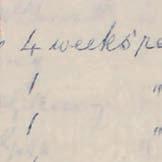 4 weeks'
1 "
1 "
1 "